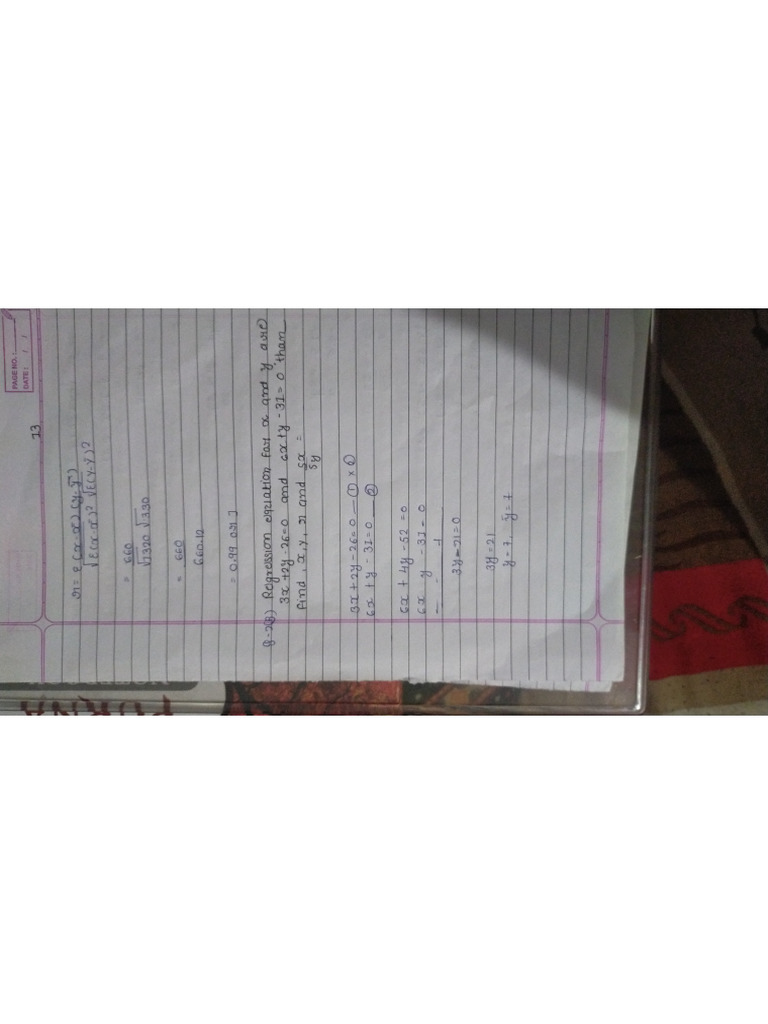 PAGE NO.:
DATE: / /
13
r = Σ(x-x̄)(y-ȳ)
√Σ(x-x̄)² √Σ(y-ȳ)²
= 660
√1320 √330
= 660
660.12
= 0.99 or 1
Regression equation for x and y are
3x + 2y - 26 = 0 and 6x + y - 31 = 0 than
find, x, y, r and Sx =
Sy
3x + 2y - 26 = 0 — ①
6x + y - 31 = 0 — ②
6x + 4y - 52 = 0
6x y - 31 = 0
- - +
3y - 21 = 0
3y = 21
y = 7, ȳ = 7
PURNA